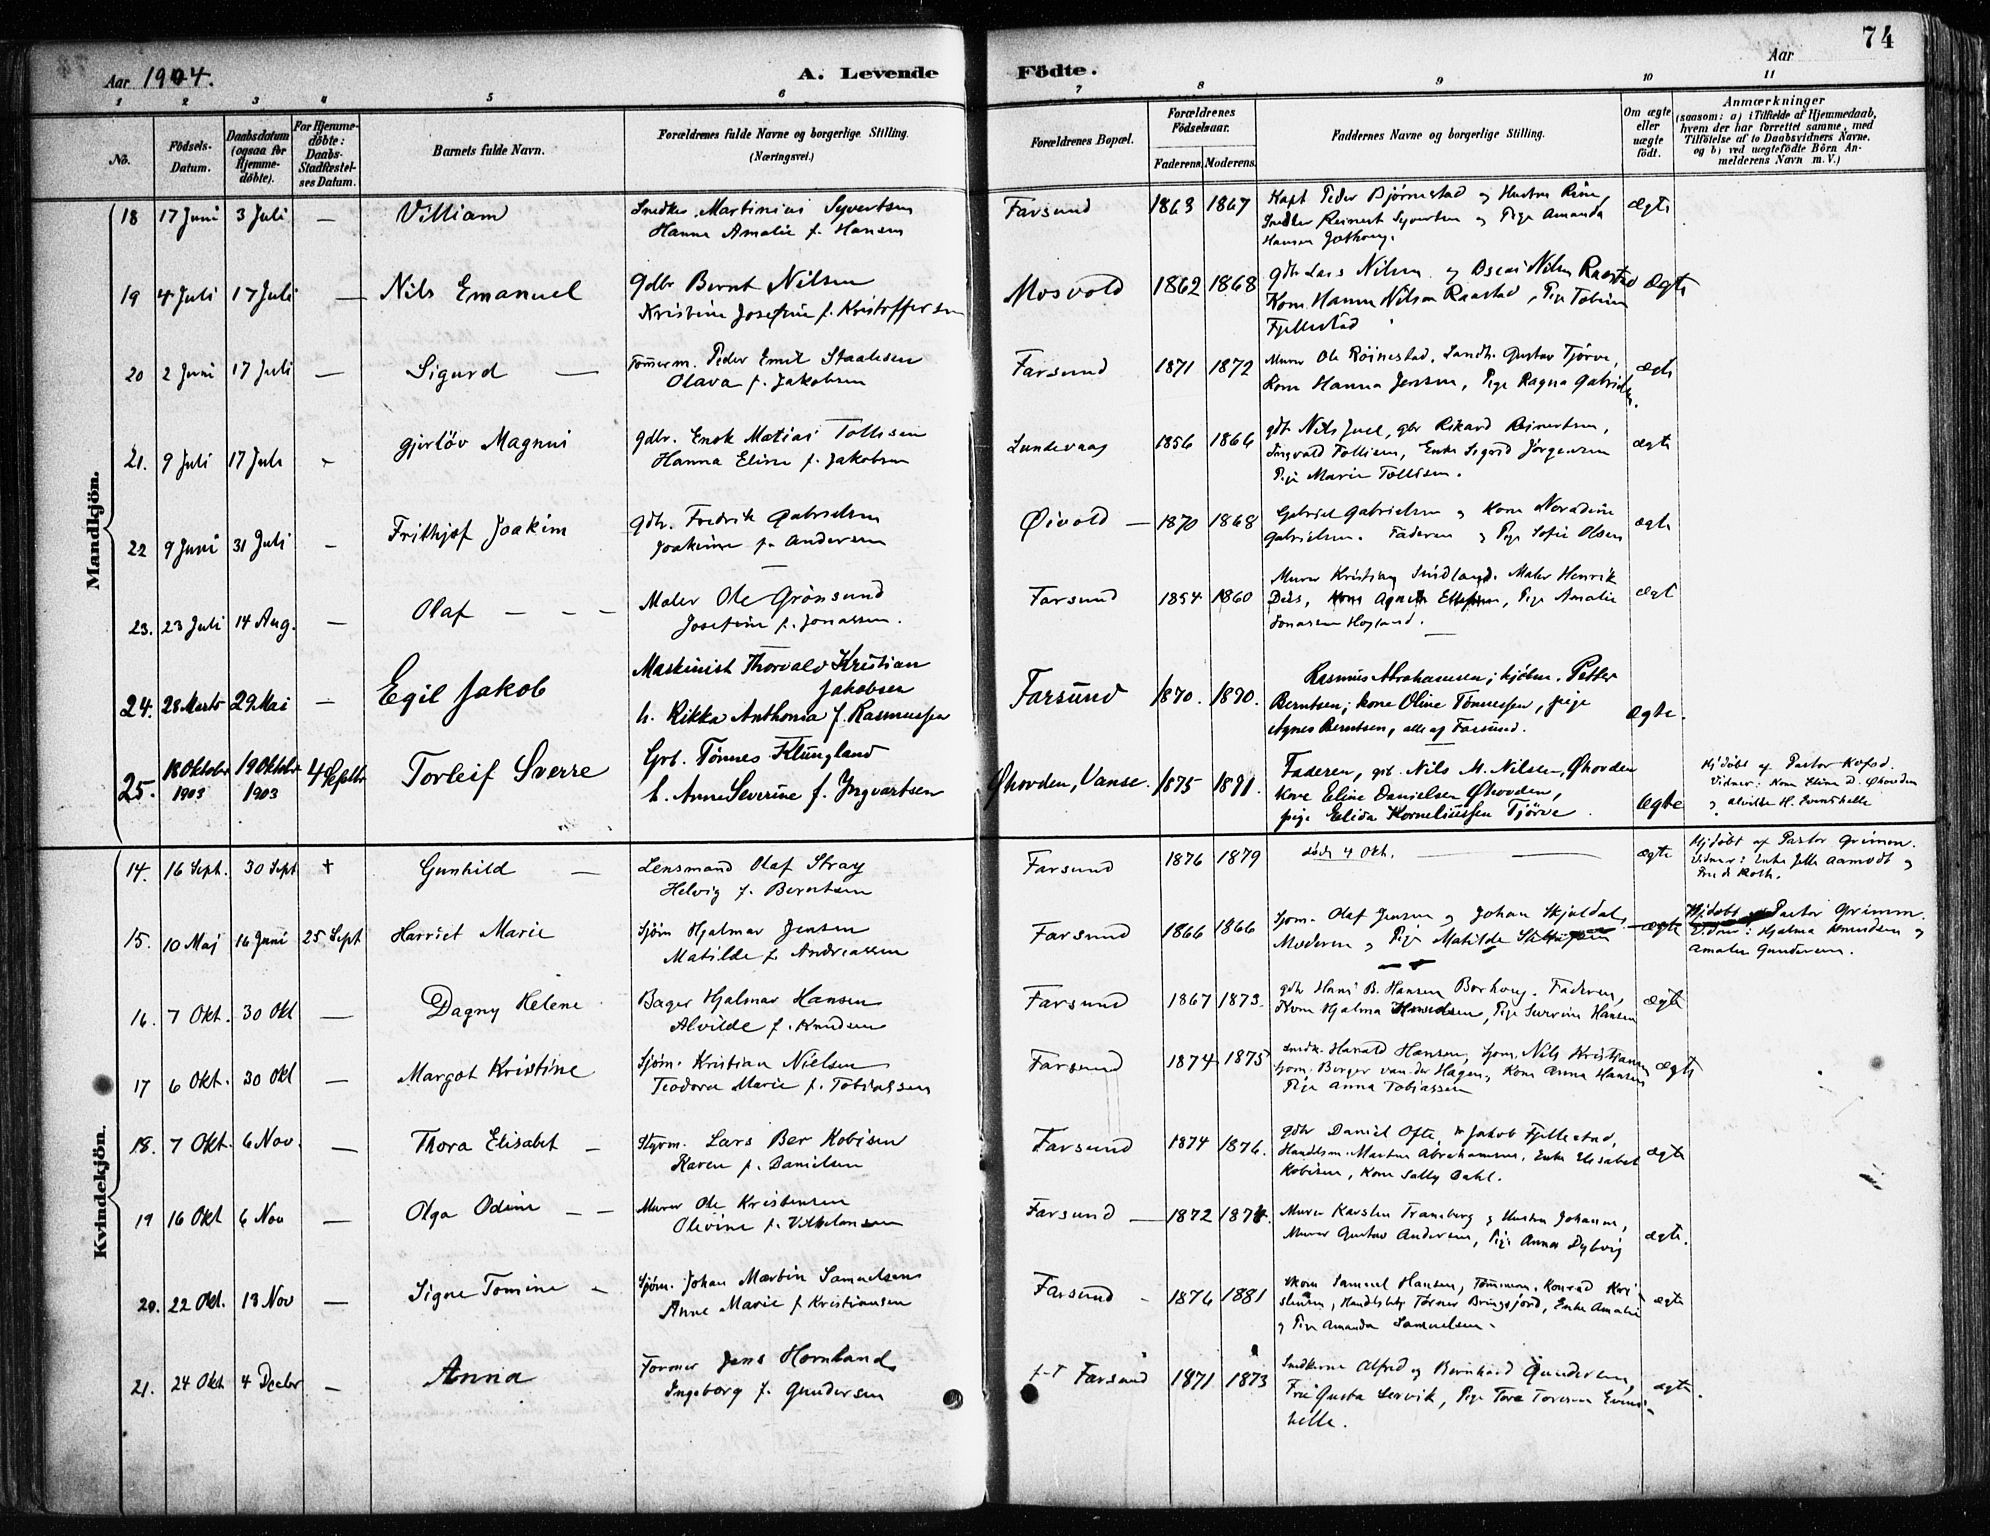 74
Aar 1904.
A. Levende
Födte.
Aar
1 2 3 4 5 6
7 8 9 10 11
No.
Födsels-Datum.
Daabsdatum (ogsaa for Hjemmedöbte).
For Hjemmedöbte: Daabs-Stadfæstelses Datum.
Barnets fulde Navn.
Forældrenes fulde Navne og borgerlige Stilling.
(Næringsvei.)
Forældrenes Bopæl.
Forældrenes Födselsaar.
Faderens. Moderens.
Faddernes Navne og borgerlige Stilling.
Om ægte eller uægte födt.
Anmærkninger
(saasom: a) i Tilfælde af Hjemmedaab, hvem der har forrettet samme, med Tilföielse af to Daabsvidners Navne. og b) ved uægtefödte Börn Anmelderens Navn m. V.)
Mandkjön.
18 17 Juni 3 Juli — William
Snedker Martinius Syvertsen
Hanna Amalie f. Hansen
Farsund 1863 1867
Kapt Peder Bjørnestad og Hustru
Snedker Reinert Syvertsen og Pige Amanda
Hansen
Ægte
19 4 Juli 17 Juli — Nils Emanuel
Gdbr Bernt Nilsen
Kristine Josefine f. Kristoffersen
Mosvold 1862 1868
Gdbr Lars Nilsen og Oscar Nilsen Raastad
Kone Hanna Nilsen Raastad, Pige
Fjellestad
Ægte
20 2 Juni 17 Juli — Sigurd —
Tømmerm. Peder Emil Staalesen
Olava f. Jakobsen
Farsund 1871 1872
Murer Ole Røinestad, Gustav Tjørve,
Kone Hanna Jensen, Pige Ragna
ægte
21. 9 Juli 17 Juli - Gjerløv Magnus
Gdbr. Enok Matias Tollisen
Hanna Eline f. Jakobsen
Lundevaag 1856 1866
Gdbr Nils Juel, gbr Rikard Reinertsen,
Ingvald Tollisen, Enke Sigrid Jørgensen
Pige Marie Tollisen.
ægte
22 9 Juni 31 Juli - Frithjof Joakim
Gdb. Fredrik Gabrielsen
Joakime f. Andersen
Øivold — 1870 1868
Gabriel Gabrielsen og Kone
Gabrielsen. Faderen og Pige Sofie Olsen
ægte
23. 23 Juli 14 Aug. — Olaf — — —
Maler Ole Grønsund
Josefine f. Jonassen.
Farsund 1854 1860
Murer Kristian Maler Henrik
Pige Amalie
Jonassen
ægte
24. 28 Marts 29 Mai — Egil Jakob
Maskinist Thorvald Kristian
Jakobsen
h. Rikka Anthonia f. Rasmussen
Farsund 1870. 1870.
Rasmus Abrahamsen; kjøbm. Petter
Berntsen; kone Oline Tønnessen, pige
Agnes Berntsen, alle af Farsund.
Ægte.
25. 18 Oktober 1903 19 Oktober 1903 4 Septbr Torleif Sverre
Grb. Tønnes Klungland
h. Anne Severine f. Ingvartsen
Øhovden, Vanse. 1875 1871.
Faderen, grb. Nils M. Nilsen, Øhovden
kone Eline Danielsen Øhovden,
pige Elida Korneliussen Tjörve
Ægte
Hjdøbt af Pastor Kofod.
Vidner: Kone Eline D. Øhovden
og Alvilde H. Eventshelle
Kvindekjön.
14. 16 Sept. 30 Sept + Gunhild —
Lensmand Olaf Stray
Helvig f. Berntsen
Farsund 1876 1879
död 4 Okt. — —
ægte
Hjdøbt af Pastor Grimen.
Vidner: Enke Aamodt og
15. 10 Maj 16 Juni 25 Sept Harriet Marie
Sjöm Hjalmar Jensen
Matilde f. Andreassen
Farsund 1866 1866
Sjom. Olaf Jensen og Johan Skjoldal,
Moderen og Pige Matilde
ægte
Hjdøbt Pastor Grimen.
Vidner: Hjalma Knudsen og
Amalie Gundersen.
16. 7 Okt. 30 Okt — Dagny Helene
Bager Hjalmar Hansen
Alvilde f. Knudsen
Farsund 1867 1873.
gdbr Hans B. Hansen Borhaug. Faderen,
Kone Hjalma Knudsen, Pige Severine Hansen
ægte
17 6 Okt. 30 Okt — Margot Kristine
Sjöm. Kristian Nielsen
Teodora Marie f. Tobiassen
Farsund 1874 1875
Snedk. Harald Hansen, Sjom. Nils Kristiansen
Sjom. Berger van der Hagen, Kone Anna Hansen
Pige Anna Tobiassen
ægte
18. 7 Okt. 6 Nov. — Thora Elisabet —
Styrm. Lars Ber Kobisen
Karen f. Danielsen
Farsund 1874 1876.
gdbr Daniel Ofte, Jakob Fjellestad,
Handelsm. Martin Abrahamsen, Enke Elisabet
Kobisen, Kone Sally Dahl.
ægte
19 16 Okt 6 Nov — Olga Odine — —
Murer Ole Kristensen
Olevine f. Vilhelmsen
Farsund — 1872 1874.
Murer Karsten Tranberg og Hustru Johanne,
Murer Gustav Andersen, Pige Anna Dybvig
ægte.
20. 22 Okt. 13 Nov — Signe Tomine —
Sjöm. Johan Martin Samuelsen
Anne Marie f. Kristiansen
Farsund - 1876 1881
Skom Samuel Hansen, Tømmerm. Konrad Kri-
stensen, Tørner Bringsjord, Enke Amalie
og Pige Amanda Samuelsen.
ægte
21. 24 Okt 4 Decbr — Anna
Formер Jens Hornland
Ingeborg f. Gundersen
f-T Farsund 1871 1873
Snedkerne Alfred og Bernhard Gundersen,
Gusta Lervik, Pige Tora Toresen Events-
helle.
ægte.